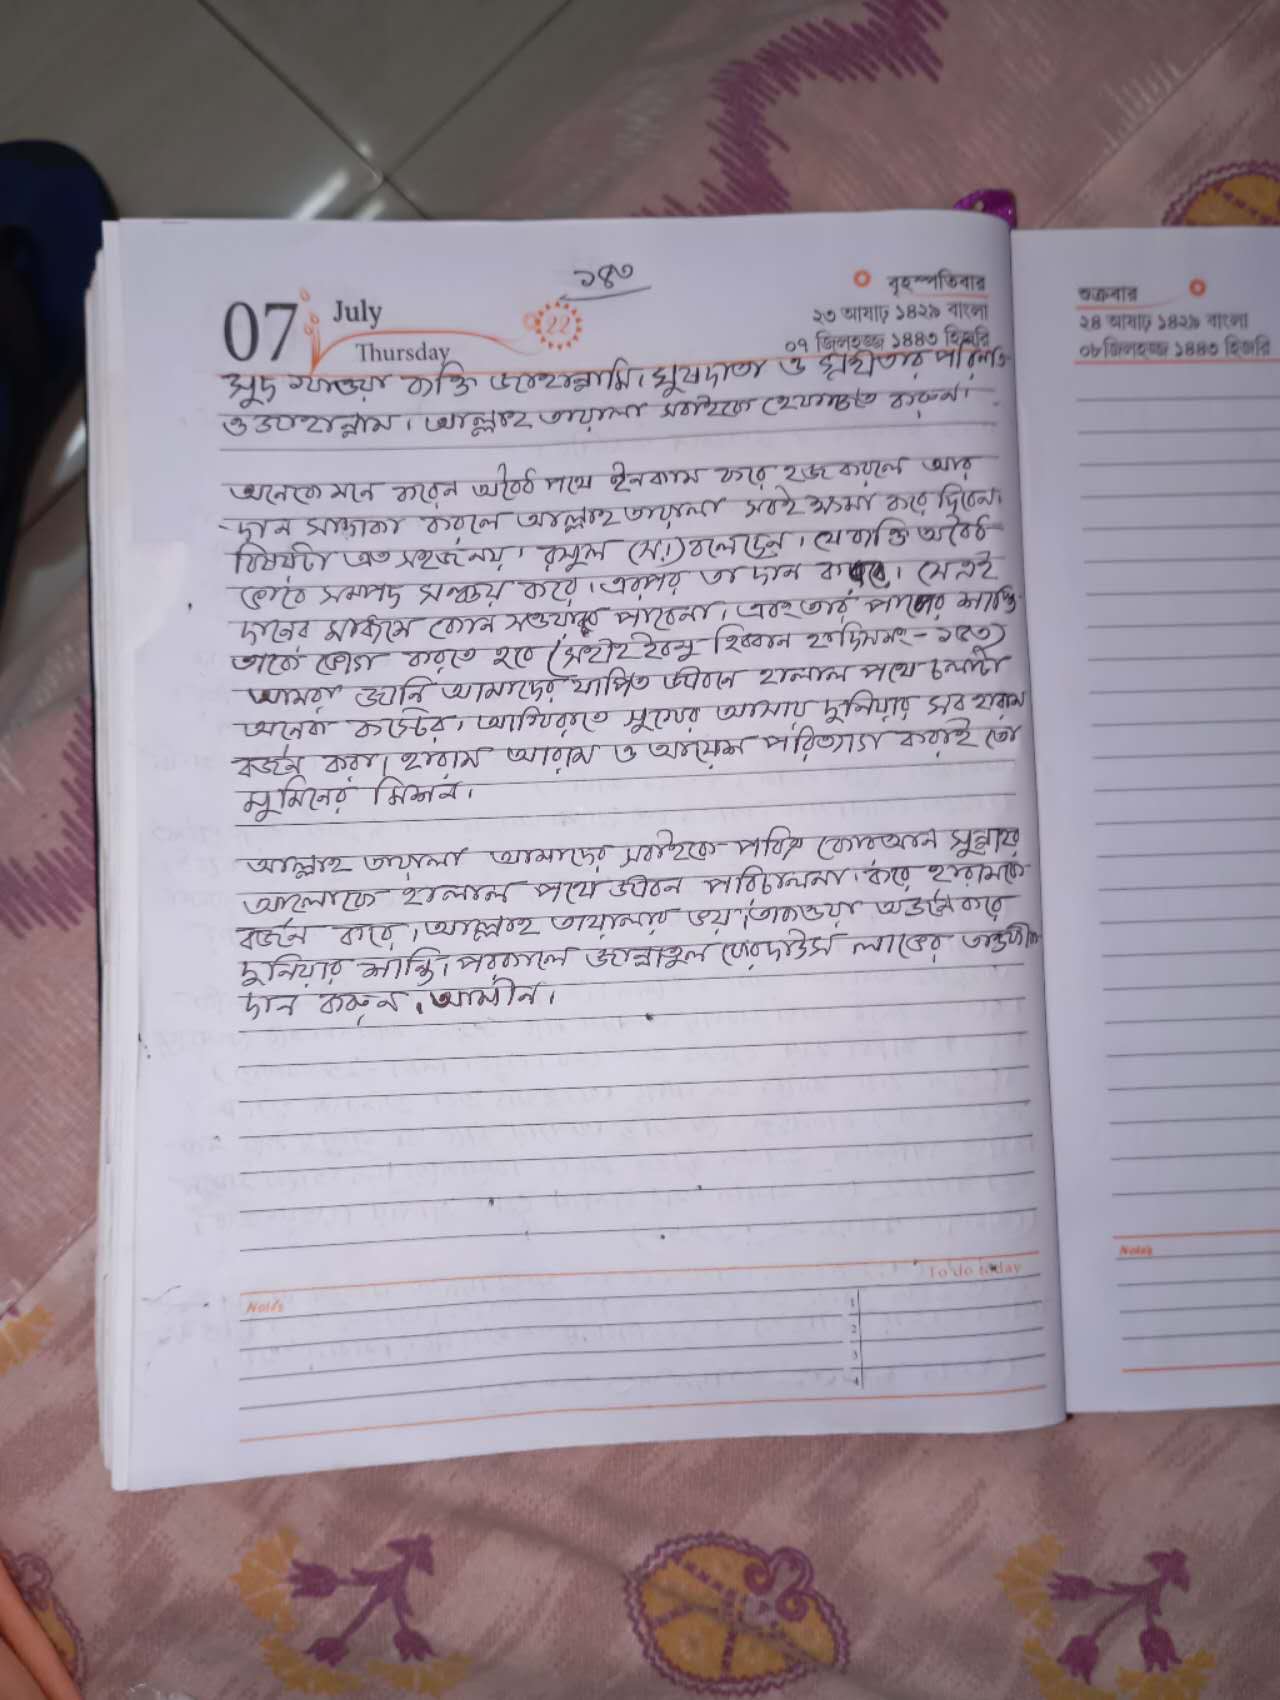 ১৪৩
07
July
Thursday
22
বৃহস্পতিবার
২৩ আষাঢ় ১৪২৯ বাংলা
০৭ জিলহজ্জ ১৪৪৩ হিজরি
সুদ খাওয়া ব্যক্তি জাহান্নামি। ঘুষদাতা ও গ্রহীতার পরিনতি
ও জাহান্নাম। আল্লাহ তায়ালা সবাইকে হেফাজত করুন।
অনেকে মনে করেন অবৈঠ পথে ইনকাম করে হজ করলে আর
দান সাদাকা করলে আল্লাহ তায়ালা সবই ক্ষমা করে দিবেন।
বিষয়টা এত সহজ নয়। রসুল (সা.) বলেছেন। যে ব্যক্তি অবৈঠ
ভাবে সম্পদ সঞ্চয় করে। এরপর তা দান করে। সে এই
দানের মাধ্যমে কোন সওয়াব পাবেনা। এবং তার পাপের শাস্তি
তাকে ভোগ করতে হবে (সহীহ ইবনু হিব্বান হাদিসনং-১৫৩)
আমরা জানি আমাদের যাপিত জীবনে হালাল পথে চলাটা
অনেক কষ্টের। আখিরাতে সুখের আশায় দুনিয়ার সব হারাম
বর্জন করা। হারাম আরাম ও আয়েশ পরিত্যাগ করাই তো
মুমিনের মিশন।
আল্লাহ তায়ালা আমাদের সবাইকে পবিত্র কোরআন সুন্নাহর
আলোকে হালাল পথে জীবন পরিচালনা করে হারামকে
বর্জন করে। আল্লাহ তায়ালার ভয়। তাকওয়া অর্জন করে
দুনিয়ার শান্তি। পরকালে জান্নাতুল ফেরদাউস লাভের তাওফীক
দান করুন। আমীন।
Notes
To do today
1
2
3
4
শুক্রবার
২৪ আষাঢ় ১৪২৯ বাংলা
০৮ জিলহজ্জ ১৪৪৩ হিজরি
Notes